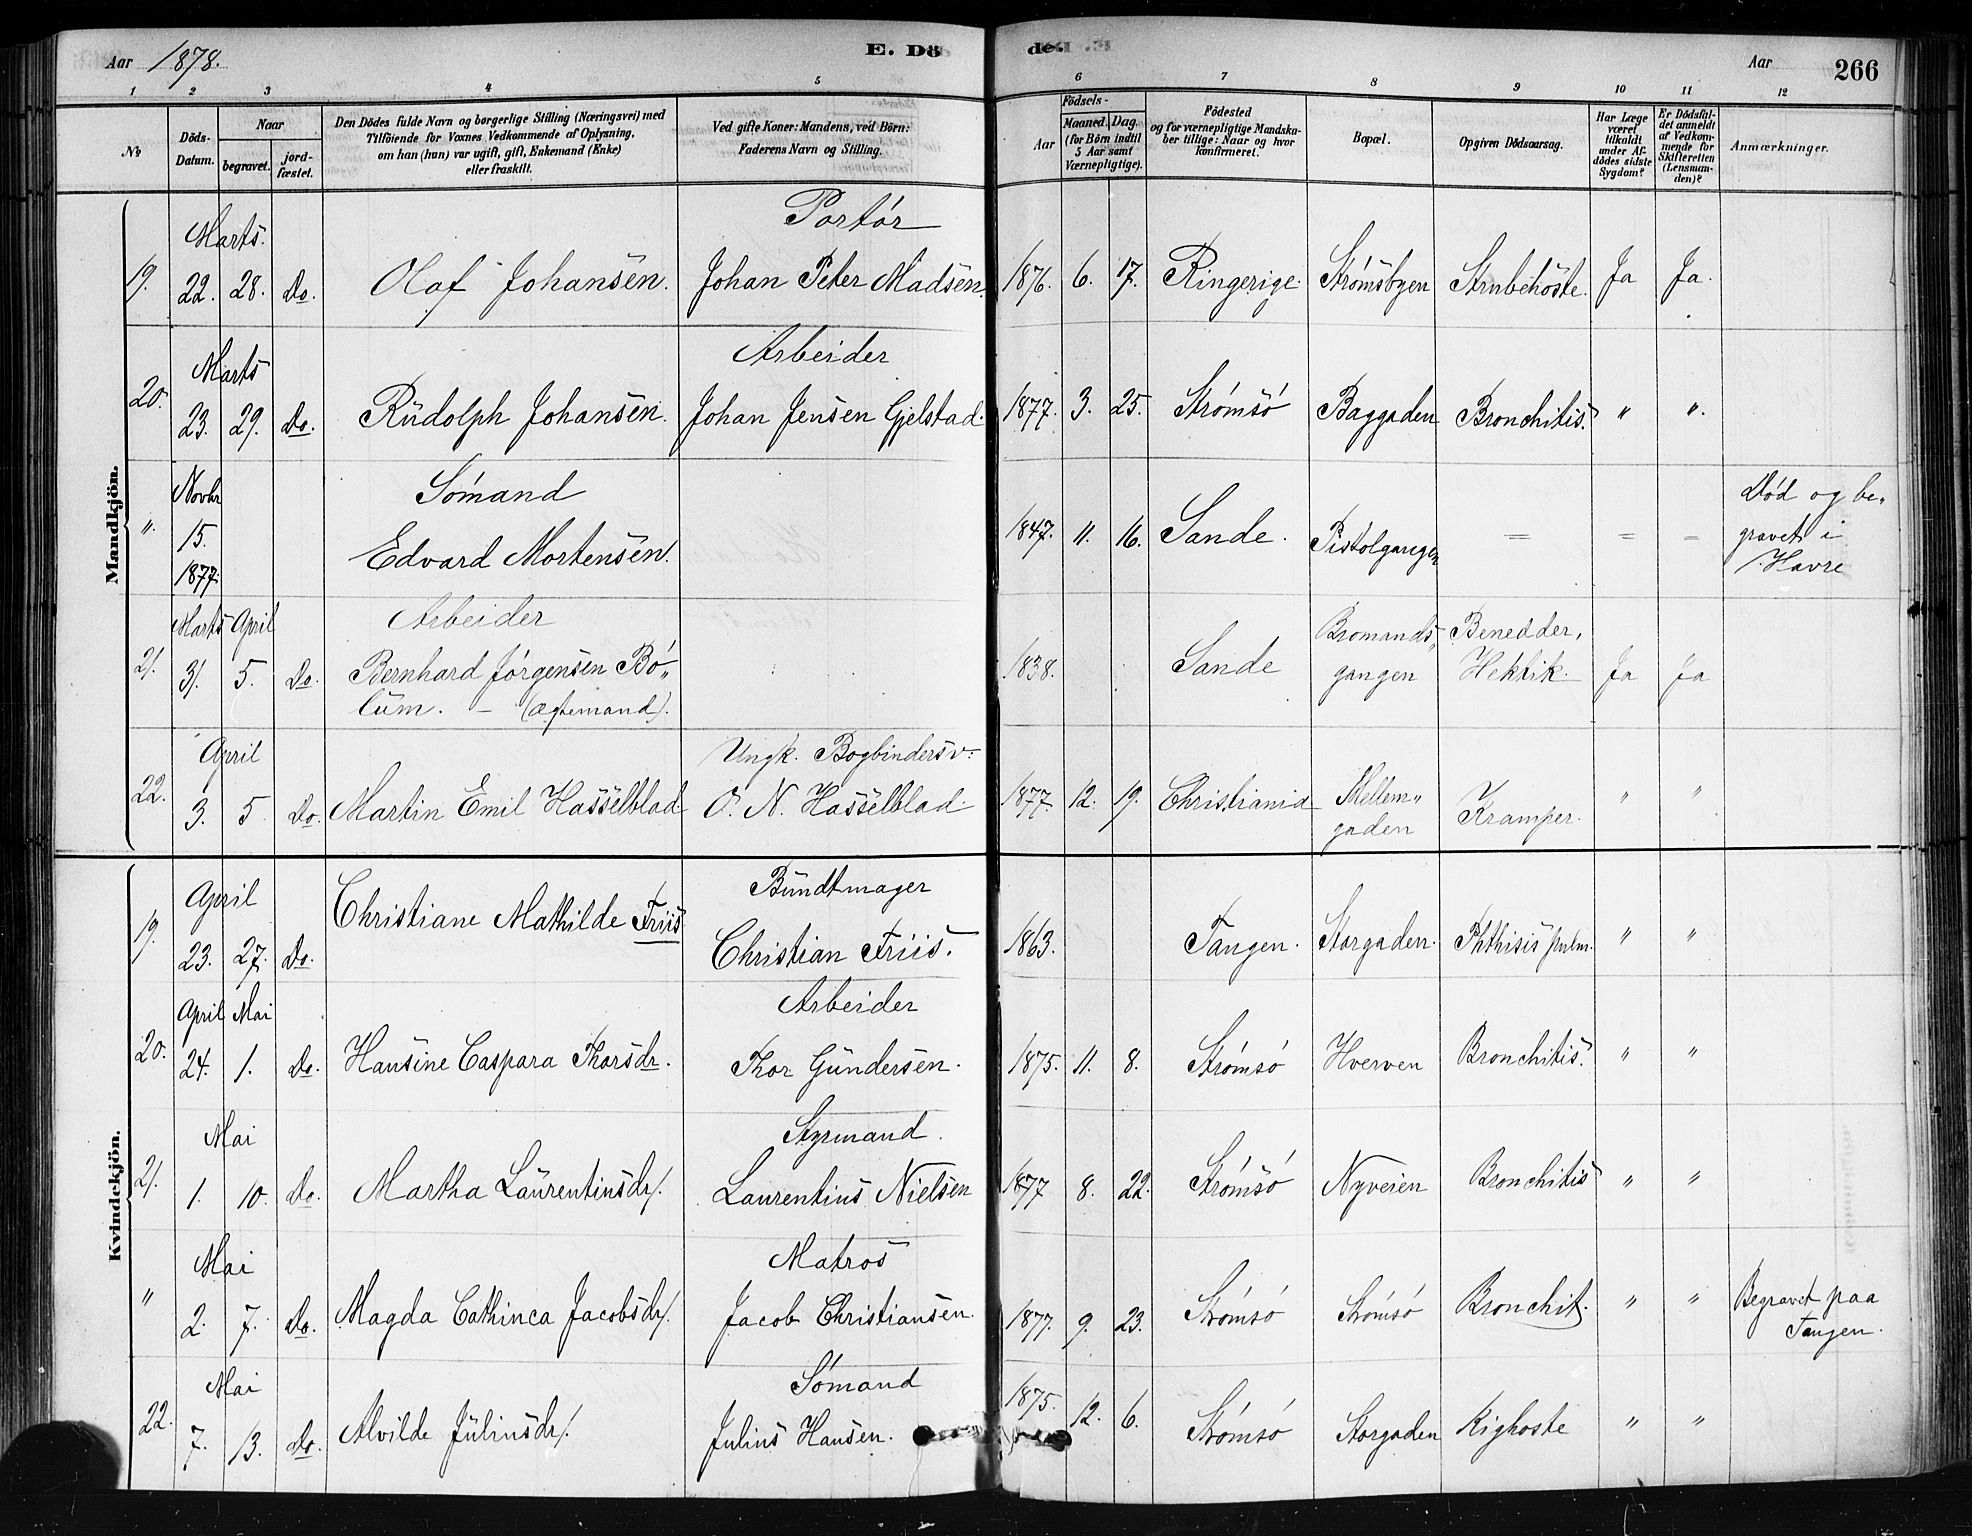 Aar 1878. E. Dö de. Aar 266
1 2 3 4 5 6 7 8 9 10 11 12
№
Döds-Datum.
Naar
begravet.
jord-fæstet.
Den Dödes fulde Navn og borgerlige Stilling (Næringsvei) med
Tilföiende for Voxnes Vedkommende af Oplysning,
om han (hun) var ugift, gift, Enkemand (Enke)
eller fraskilt.
Ved gifte Koner: Mandens, ved Börn:
Faderens Navn og Stilling.
Födsels-
Aar
Maaned. Dag.
(for Börn indtil
5 Aar samt
Værnepligtige).
Födested
og for værnepligtige Mandska-
ber tillige: Naar og hvor
konfirmeret.
Bopæl.
Opgiven Dödsaarsag.
Har Læge
været
tilkaldt
under Af-
dödes sidste
Sygdom?
Er Dödsfal-
det anmeldt
af Vedkom-
mende for
Skifteretten
(Lensman-
den)?
Anmærkninger.
Mandkjön.
Marts. Portör
19. 22. 28. Do. Olaf Johansen. Johan Peter Madsen. 1876. 6. 17. Ringerige. Strømsbyen Strubehoste. Ja Ja.
Marts Arbeider
20. 23. 29. Do. Rudolph Johansen. Johan Jensen Gjelstad. 1877. 3. 25. Strømsö Baggaden Bronchitis. " ".
Novbr Sömand Död og be-
" 15. Edvard Mortensen. 1847. 11. 16. Sande. Pistolgangen = = = gravet i
1877. Havre
Marts April Arbeider Bromands- Benedder,
21. 31. 5. Do. Bernhard Jörgensen Bö- 1838. Sande gangen Hektik. Ja Ja
lum. - (Ægtemand).
April Ungk. Bogbindersv.
22. 3. 5 Do. Martin Emil Hasselblad O. N. Hasselblad. 1877. 12. 19. Christiania Mellem- Kramper. " "
gaden
Kvindekjön.
April Bundtmager
19. 23. 27. Do. Christiane Mathilde Friis Christian Friis. 1863. Tangen. Storgaden. Phthisis pulm. " "
April Mai Arbeider
20. 24. 1. Do. Hansine Caspara Thorsdr. Thor Gundersen. 1875. 11. 8. Strømsö Hverven Bronchitis. " "
Mai Styrmand.
21. 1. 10. Do. Martha Laurentinsdr. Laurentius Nielsen 1877 8. 22. Strømsö Nyveien Bronchitis " "
Mai Matros
" 2. 7. Do. Magda Cathinca Jacobsdr. Jacob Christiansen. 1877. 9. 23. Strømsö Strømsö Bronchit. " " Begravet paa
Tangen.
Mai Sömand
22. 7. 13. Do. Alvilde Juliusdr. Julius Hansen. 1875. 12. 6. Strømsö Storgaden Kighoste " "